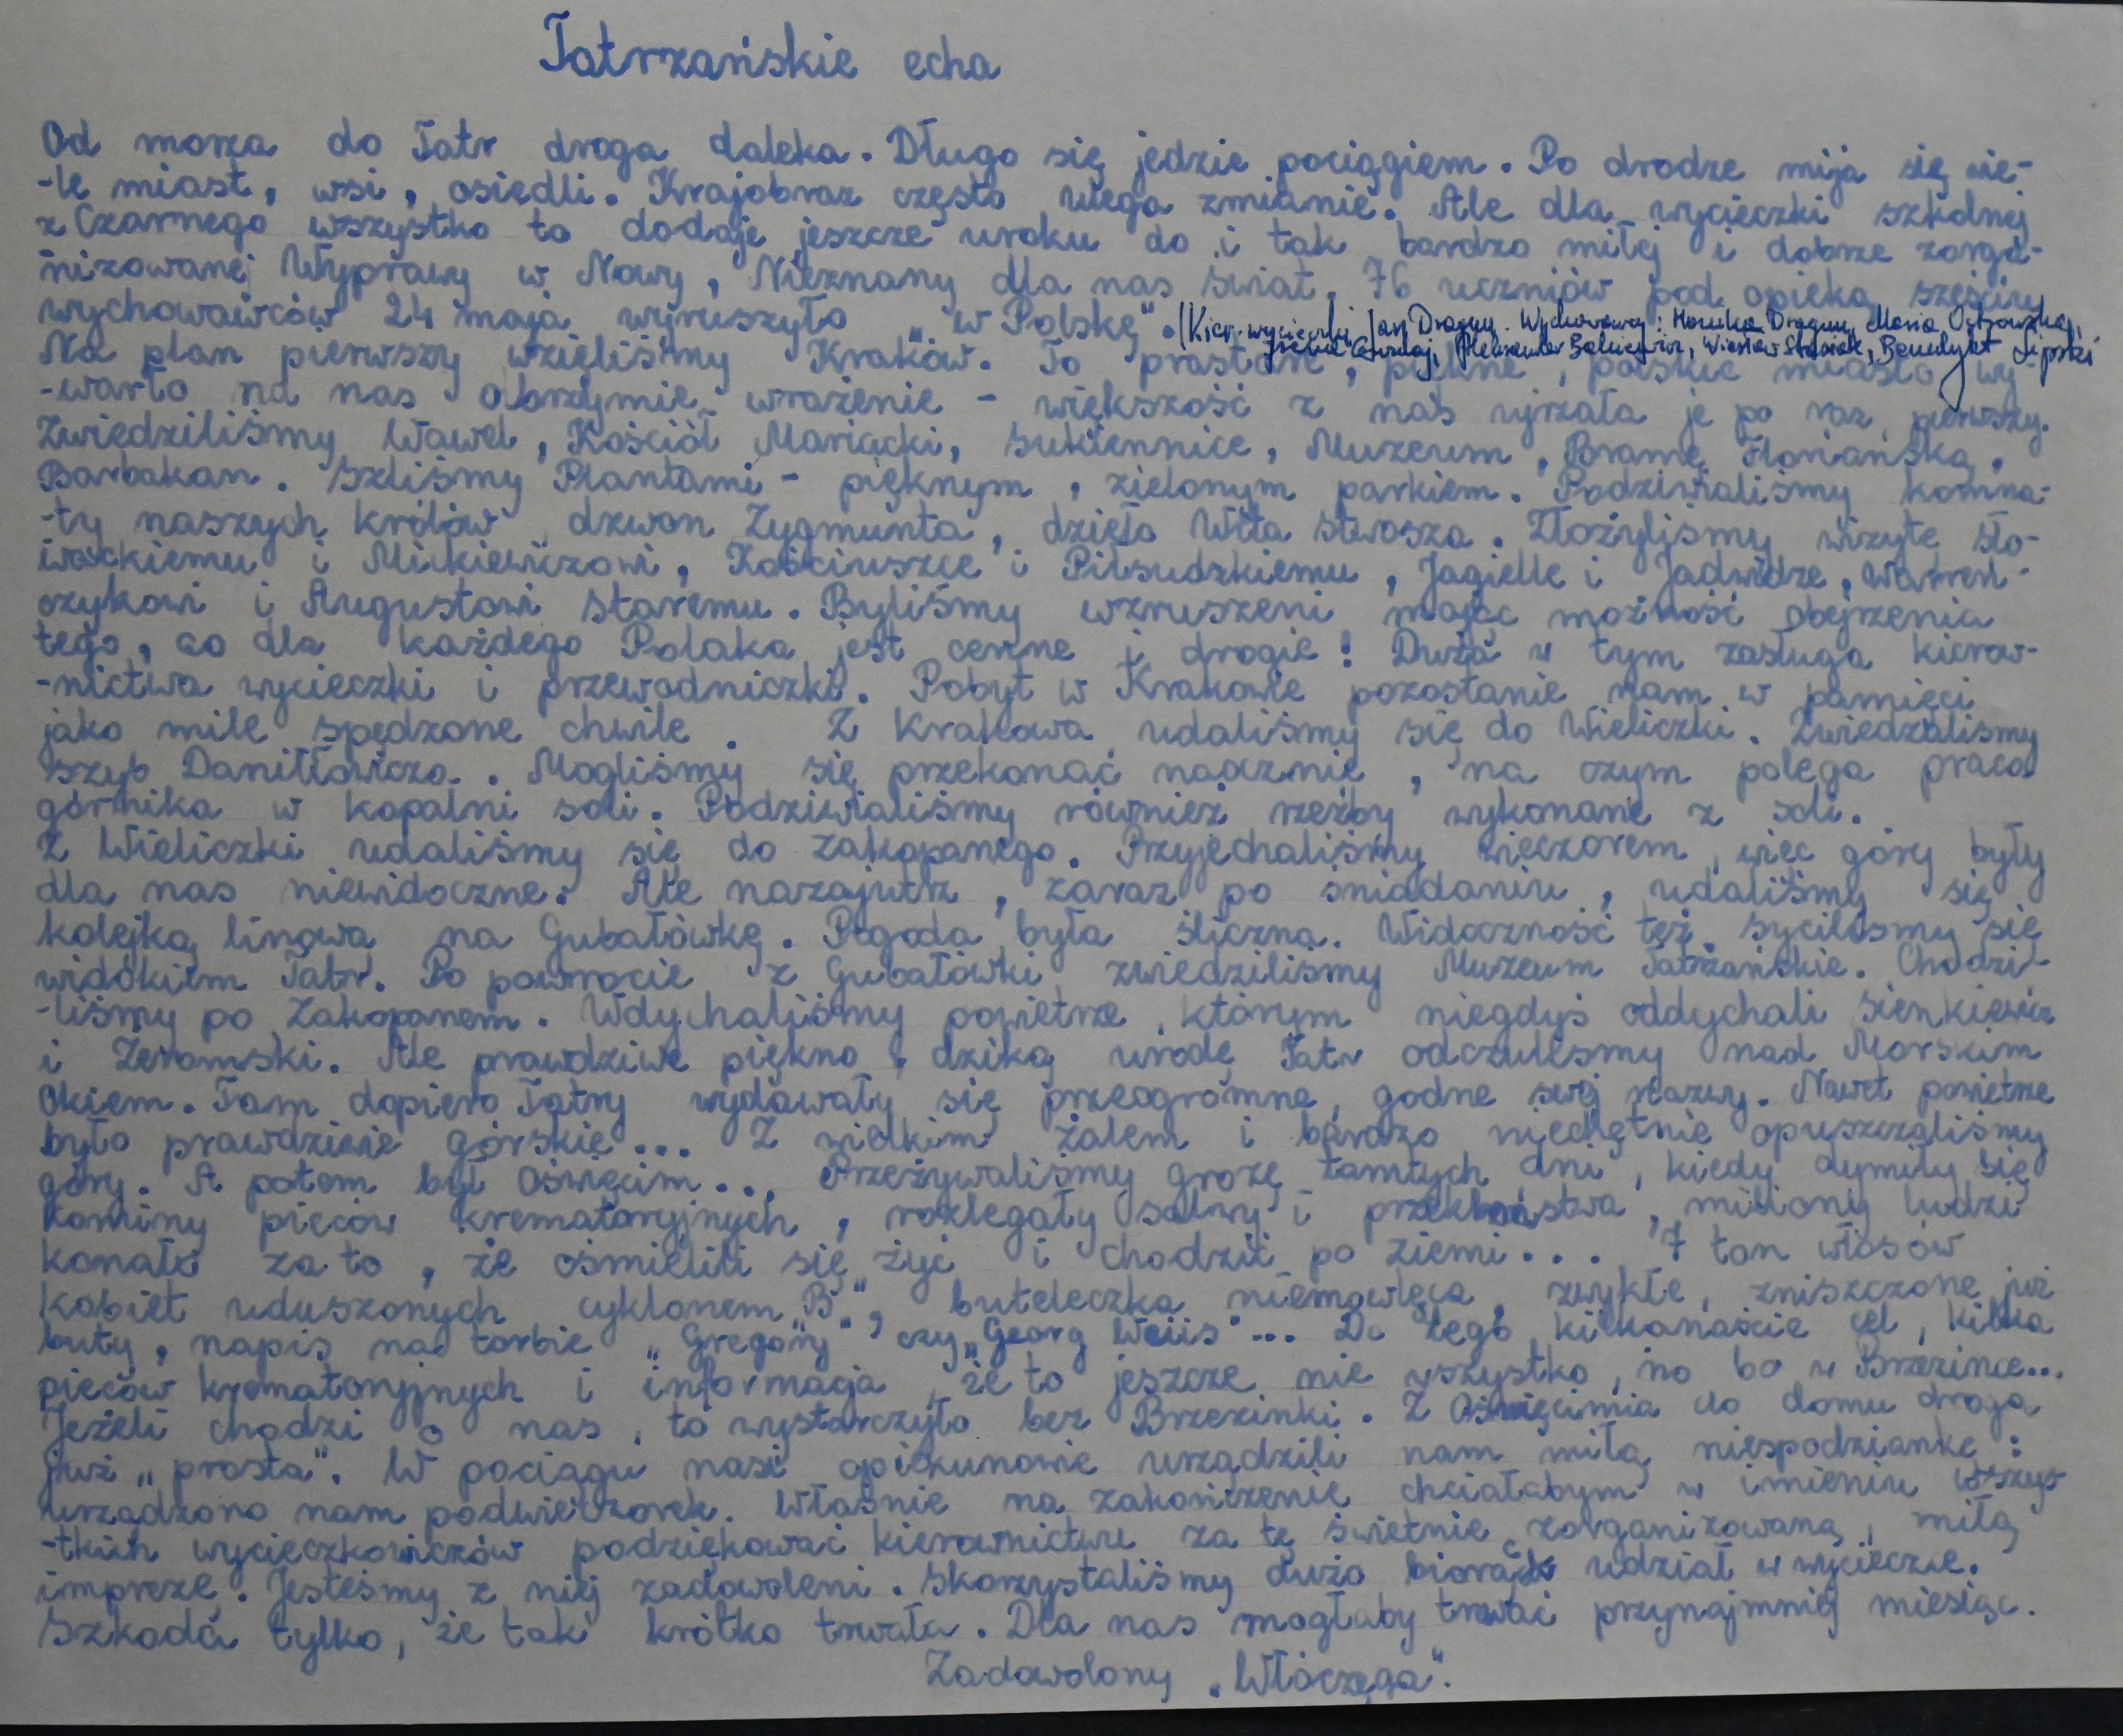 Tatrzańskie echa
Od morza do Tatr droga daleka. Długo się jedzie pociągiem. Po drodze mija się wie-
-le miast, wsi, osiedli. Krajobraz często ulega zmianie. Ale dla wycieczki szkolnej
z Czarnego wszystko to dodaje jeszcze uroku do i tak bardzo miłej i dobrze zorga-
nizowanej Wyprawy w Nowy, Nieznany dla nas świat. 76 uczniów pod opieką sześciu
wychowawców 24 maja wyruszyło „w Polskę". (Kier. wycieczki Jan Dragun. Wychowawcy: Monika Dragun, Maria Ostrowska,
Aleksander Bolucewicz, Wiesław Stasiak, Benedykt Lipski
Na plan pierwszy wzięliśmy Kraków. To prastare, piękne, polskie miasto wy-
-warło na nas olbrzymie wrażenie - większość z nas ujrzała je po raz pierwszy.
Zwiedziliśmy Wawel, Kościół Mariacki, Sukiennice, Muzeum, Bramę Floriańską,
Barbakan. Szliśmy Plantami - pięknym, zielonym parkiem. Podziwialiśmy komna-
-ty naszych królów, dzwon Zygmunta, dzieła Wita Stwosza. Złożyliśmy wizytę Sło-
wackiemu i Mickiewiczowi, Kościuszce i Piłsudzkiemu, Jagielle i Jadwidze, Warneń-
czykowi i Augustowi Staremu. Byliśmy wzruszeni mając możność obejrzenia
tego, co dla każdego Polaka jest cenne i drogie! Duża w tym zasługa kierow-
-nictwa wycieczki i przewodniczki. Pobyt w Krakowie pozostanie nam w pamięci
jako mile spędzone chwile. Z Krakowa udaliśmy się do Wieliczki. Zwiedzaliśmy
szyb Daniłłowicza. Mogliśmy się przekonać naocznie, na czym polega praca
górnika w kopalni soli. Podziwialiśmy również rzeźby wykonane z soli.
Z Wieliczki udaliśmy się do Zakopanego. Przyjechaliśmy wieczorem, więc góry były
dla nas niewidoczne. Ale nazajutrz, zaraz po śniadaniu, udaliśmy się
kolejką linową na Gubałówkę. Pogoda była śliczna. Widoczność też. Syciliśmy się
widokiem Tatr. Po powrocie z Gubałówki zwiedziliśmy Muzeum Tatrzańskie. Chodzi-
-liśmy po Zakopanem. Wdychaliśmy powietrze, którym niegdyś oddychali Sienkiewicz
i Żeromski. Ale prawdziwe piękno, dziką urodę Tatr odczuliśmy nad Morskim
Okiem. Tam dopiero Tatry wydawały się przeogromne, godne swej nazwy. Nawet powietrze
było prawdziwie górskie... Z wielkim żalem i bardzo niechętnie opuszczaliśmy
góry. A potem był Oświęcim... Przeżywaliśmy grozę tamtych dni, kiedy dymiły się
kominy pieców krematoryjnych, rozlegały salwy i przekleństwa, miliony ludzi
konało za to, że ośmielili się żyć i chodzić po ziemi... 7 ton włosów
kobiet uduszonych cyklonem „B", buteleczka niemowlęca, zwykłe, zniszczone już
buty, napis na torbie „Gregory" czy „Georg Weiis"... Do tego kilkanaście cel, kilka
pieców krematoryjnych i informacja, że to jeszcze nie wszystko, no bo w Brzezince...
Jeżeli chodzi o nas, to wystarczyło bez Brzezinki. Z Oświęcimia do domu droga
już „prosta". W pociągu nasi opiekunowie urządzili nam miłą niespodziankę:
urządzono nam podwieczorek. Właśnie na zakończenie chciałabym w imieniu wszys
-tkich wycieczkowiczów podziękować kierownictwu za tę świetnie zorganizowaną, miłą
imprezę. Jesteśmy z niej zadowoleni. Skorzystaliśmy dużo biorąc udział w wycieczce.
Szkoda tylko, że tak krótko trwała. Dla nas mogłaby trwać przynajmniej miesiąc.
Zadowolony „Włóczęga".